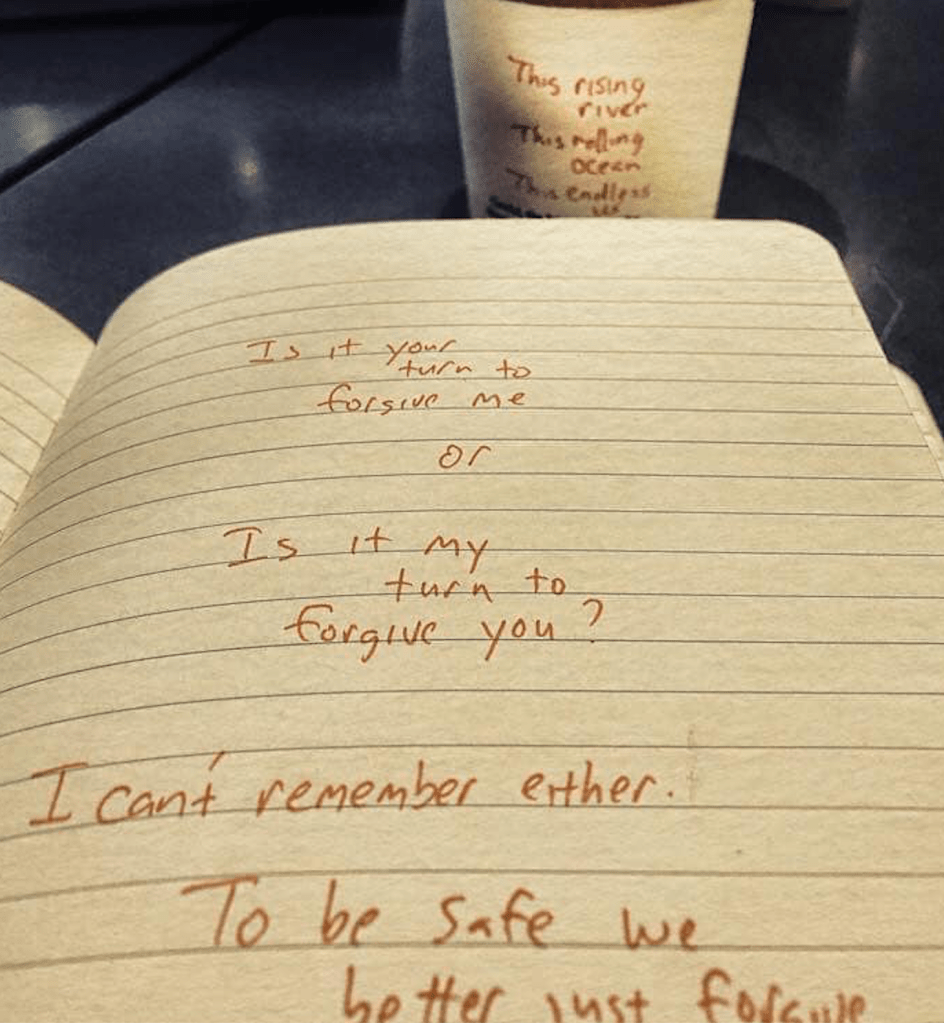 This rising
river
This rolling
ocean
This endless
Is it your
turn to
forgive me
or
Is it my
turn to
forgive you?
I can't remember either.
To be safe we
better just forgive